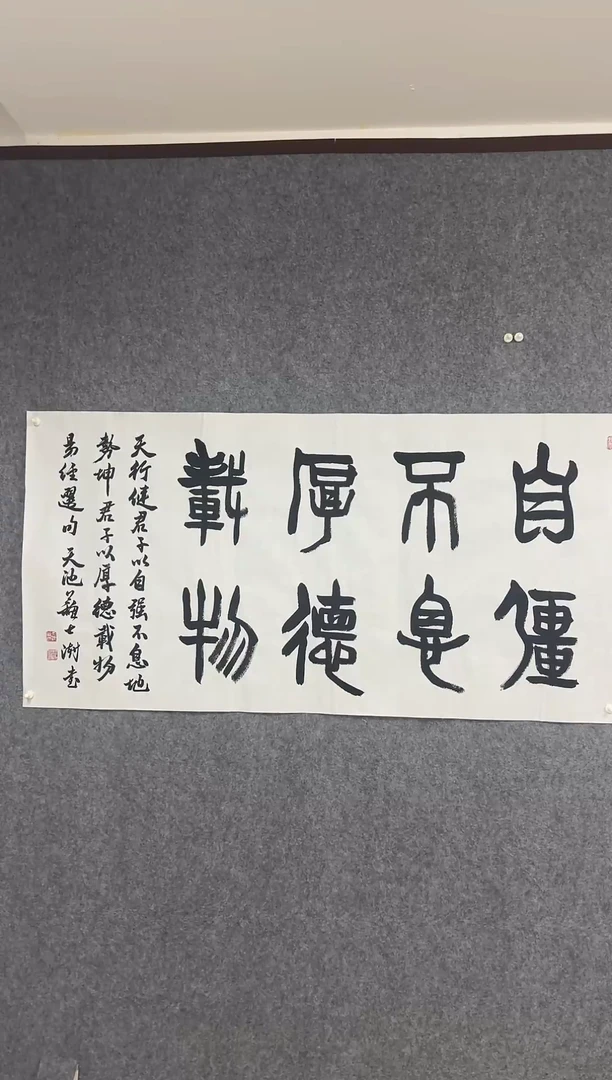 自彊
不息
厚德
載物
天行健君子以自强不息地
勢坤君子以厚德載物
易经選句 天池蘇士澍书